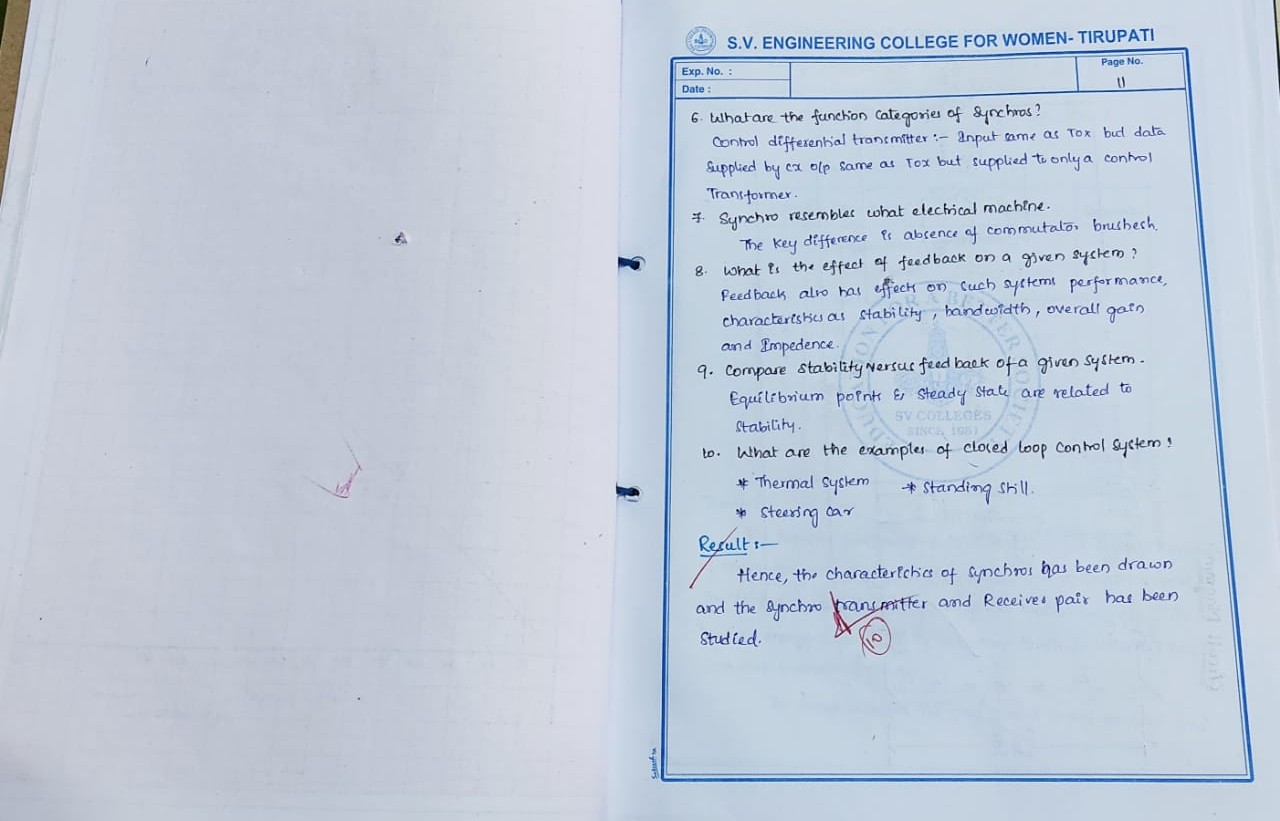 S.V. ENGINEERING COLLEGE FOR WOMEN- TIRUPATI
Exp. No. :
Date :
Page No.
11
6. What are the function Categories of Synchros?
Control differential transmitter :- Input same as Tox but data
Supplied by cx o/p same as Tox but supplied to only a control
Transformer.
7. Synchro resembles what electrical machine.
The Key difference is absence of commutator brushesh.
8. What is the effect of feedback on a given system?
Feedback also has effects on such systems performance,
characteristics as stability, bandwidth, overall gain
and Impedence.
9. Compare stability versus feed back of a given system.
Equilibrium points & Steady State are related to
Stability.
10. What are the examples of closed loop control system?
* Thermal System * Standing still.
* Steering car
Result :-
Hence, the characteristics of synchros has been drawn
and the Synchro transmitter and Receiver pair has been
Studied.
10
EDUCATION FOR A BETTER SOCIETY
SV COLLEGES
SINCE 1981